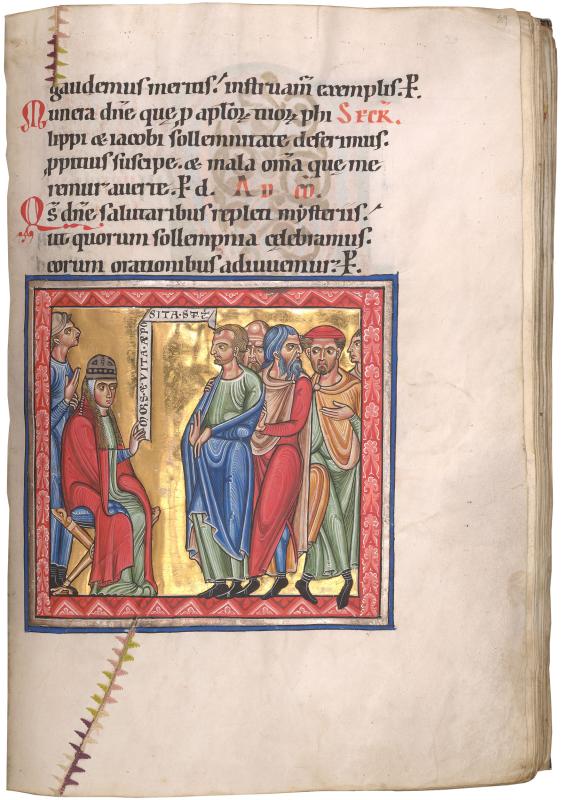 gaudemus meritis. instruam exemplis. P.
Munera dne que p aptor tuor phi Secr.
lippi & iacobi sollemnitate deferimus.
ppitius suscipe. & mala oma que me
remur auerte. P d. Ad co.
Qs dne salutaribus repleti mysteriis.
ut quorum sollempnia celebramus.
eorum orationibus adiuuemur. P.
MORS & VITA APO
SITA ST